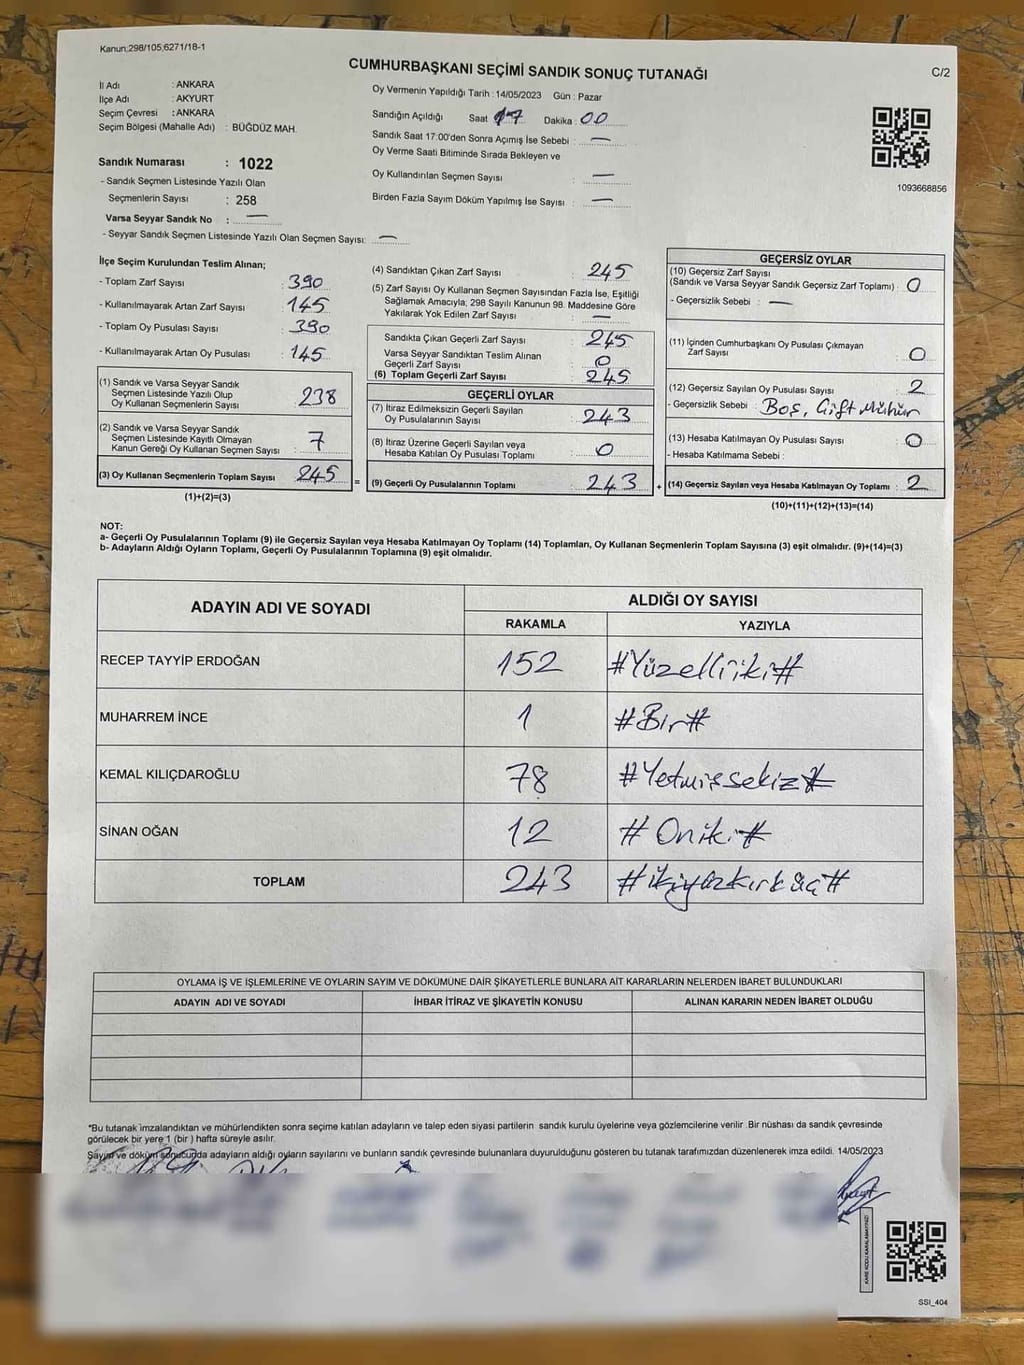 Kanun;298/105;6271/18-1
CUMHURBAŞKANI SEÇİMİ SANDIK SONUÇ TUTANAĞI
C/2
İl Adı : ANKARA
İlçe Adı : AKYURT
Seçim Çevresi : ANKARA
Seçim Bölgesi (Mahalle Adı) : BÜĞDÜZ MAH.
Sandık Numarası : 1022
- Sandık Seçmen Listesinde Yazılı Olan
Seçmenlerin Sayısı : 258
Varsa Seyyar Sandık No : —
- Seyyar Sandık Seçmen Listesinde Yazılı Olan Seçmen Sayısı: —
Oy Vermenin Yapıldığı Tarih : 14/05/2023 Gün : Pazar
Sandığın Açıldığı Saat 17 Dakika : 00
Sandık Saat 17:00'den Sonra Açımış İse Sebebi : —
Oy Verme Saati Bitiminde Sırada Bekleyen ve
Oy Kullandırılan Seçmen Sayısı : —
Birden Fazla Sayım Döküm Yapılmış İse Sayısı : —
1093668856
İlçe Seçim Kurulundan Teslim Alınan;
- Toplam Zarf Sayısı : 390
- Kullanılmayarak Artan Zarf Sayısı : 145
- Toplam Oy Pusulası Sayısı : 390
- Kullanılmayarak Artan Oy Pusulası : 145
(1) Sandık ve Varsa Seyyar Sandık
Seçmen Listesinde Yazılı Olup
Oy Kullanan Seçmenlerin Sayısı : 238
(2) Sandık ve Varsa Seyyar Sandık
Seçmen Listesinde Kayıtlı Olmayan
Kanun Gereği Oy Kullanan Seçmen Sayısı : 7
(3) Oy Kullanan Seçmenlerin Toplam Sayısı : 245
(1)+(2)=(3)
=
(4) Sandıktan Çıkan Zarf Sayısı : 245
(5) Zarf Sayısı Oy Kullanan Seçmen Sayısından Fazla İse, Eşitliği
Sağlamak Amacıyla; 298 Sayılı Kanunun 98. Maddesine Göre
Yakılarak Yok Edilen Zarf Sayısı : —
Sandıkta Çıkan Geçerli Zarf Sayısı : 245
Varsa Seyyar Sandıktan Teslim Alınan
Geçerli Zarf Sayısı : 0
(6) Toplam Geçerli Zarf Sayısı : 245
GEÇERLİ OYLAR
(7) İtiraz Edilmeksizin Geçerli Sayılan
Oy Pusulalarının Sayısı : 243
(8) İtiraz Üzerine Geçerli Sayılan veya
Hesaba Katılan Oy Pusulası Toplamı : 0
(9) Geçerli Oy Pusulalarının Toplamı : 243
+
GEÇERSİZ OYLAR
(10) Geçersiz Zarf Sayısı
(Sandık ve Varsa Seyyar Sandık Geçersiz Zarf Toplamı) : 0
- Geçersizlik Sebebi : —
(11) İçinden Cumhurbaşkanı Oy Pusulası Çıkmayan
Zarf Sayısı : 0
(12) Geçersiz Sayılan Oy Pusulası Sayısı : 2
- Geçersizlik Sebebi : Boş, Çift Mühür
(13) Hesaba Katılmayan Oy Pusulası Sayısı : 0
- Hesaba Katılmama Sebebi :
(14) Geçersiz Sayılan veya Hesaba Katılmayan Oy Toplamı : 2
(10)+(11)+(12)+(13)=(14)
NOT:
a- Geçerli Oy Pusulalarının Toplamı (9) ile Geçersiz Sayılan veya Hesaba Katılmayan Oy Toplamı (14) Toplamları, Oy Kullanan Seçmenlerin Toplam Sayısına (3) eşit olmalıdır. (9)+(14)=(3)
b- Adayların Aldığı Oyların Toplamı, Geçerli Oy Pusulalarının Toplamına (9) eşit olmalıdır.
ADAYIN ADI VE SOYADI
ALDIĞI OY SAYISI
RAKAMLA YAZIYLA
RECEP TAYYİP ERDOĞAN 152 #Yüzelliiki#
MUHARREM İNCE 1 #Bir#
KEMAL KILIÇDAROĞLU 78 #Yetmişsekiz#
SİNAN OĞAN 12 #Oniki#
TOPLAM 243 #ikiyüzkırküç#
OYLAMA İŞ VE IŞLEMLERİNE VE OYLARIN SAYIM VE DÖKÜMÜNE DAİR ŞİKAYETLERLE BUNLARA AİT KARARLARIN NELERDEN İBARET BULUNDUKLARI
ADAYIN ADI VE SOYADI İHBAR İTİRAZ VE ŞİKAYETİN KONUSU ALINAN KARARIN NEDEN İBARET OLDUĞU
*Bu tutanak imzalandıktan ve mühürlendikten sonra seçime katılan adayların ve talep eden siyasi partilerin sandık kurulu üyelerine veya gözlemcilerine verilir .Bir nüshası da sandık çevresinde
görülecek bir yere 1 (bir ) hafta süreyle asılır.
Sayım ve döküm sonucunda adayların aldığı oyların sayılarını ve bunların sandık çevresinde bulunanlara duyurulduğunu gösteren bu tutanak tarafımızdan düzenlenerek imza edildi. 14/05/2023
KARE KODU KARALAMAYINIZ!
SSI_404